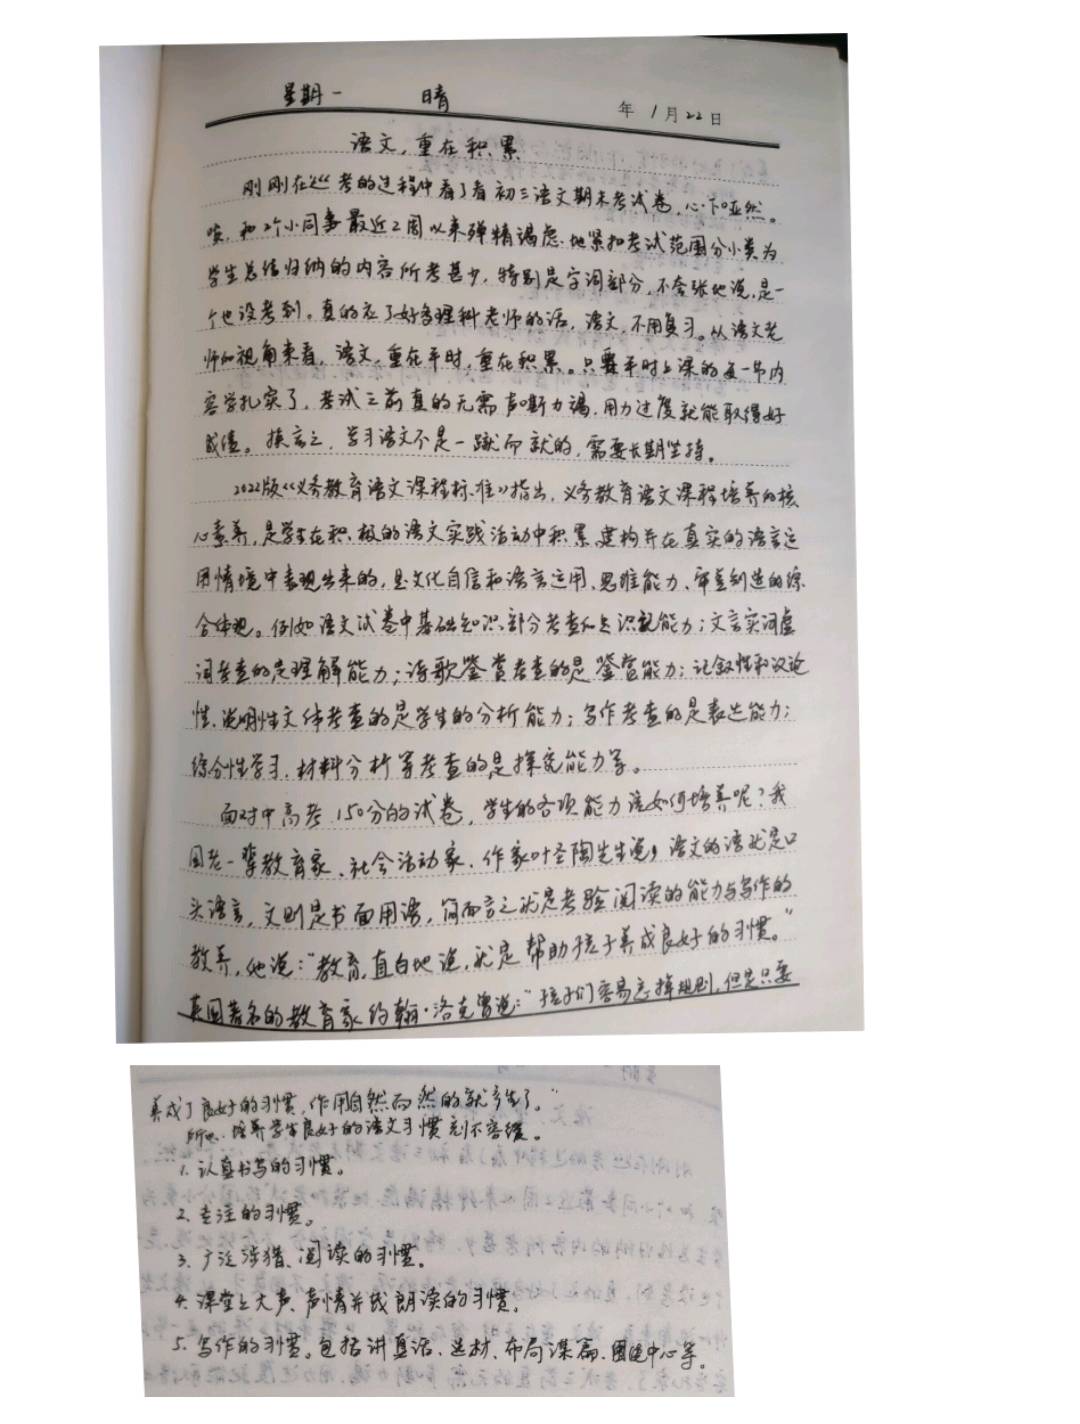 星期一 晴 年 1月22日
语文，重在积累
刚刚在巡考的过程中看了看初三语文期末考试卷，心下哑然。
唉，和2个小同事最近2周以来殚精竭虑地紧扣考试范围分小类为
学生总结归纳的内容所考甚少，特别是字词部分，不夸张地说，是一
个也没考到。真的应了好多理科老师的话，语文，不用复习。从语文老
师的视角来看，语文，重在平时，重在积累。只要平时上课的每一节内
容学扎实了，考试之前真的无需声嘶力竭，用力过度就能取得好
成绩。换言之，学习语文不是一蹴而就的，需要长期坚持。
2022版《义务教育语文课程标准》指出，义务教育语文课程培养的核
心素养，是学生在积极的语文实践活动中积累、建构并在真实的语言运
用情境中表现出来的，是文化自信和语言运用、思维能力、审美创造的综
合体现。例如语文试卷中基础知识部分考查的是识记能力；文言实词虚
词考查的是理解能力；诗歌鉴赏考查的是鉴赏能力；记叙性和议论
性、说明性文体考查的是学生的分析能力；写作考查的是表达能力；
综合性学习、材料分析等考查的是探究能力等。
面对中高考150分的试卷，学生的各项能力该如何培养呢？我
国老一辈教育家、社会活动家、作家叶圣陶先生说，语文的语就是口
头语言，文则是书面用语，简而言之就是考验阅读的能力与写作的
教养，他说：“教育，直白地说，就是帮助孩子养成良好的习惯。”
英国著名的教育家约翰·洛克曾说：“孩子们容易忘掉规则，但是只要
养成了良好的习惯，作用自然而然的就产生了。”
所以，培养学生良好的语文习惯刻不容缓。
1. 认真书写的习惯。
2. 专注的习惯。
3. 广泛涉猎、阅读的习惯。
4. 课堂上大声、声情并茂朗读的习惯。
5. 写作的习惯。包括讲真话、选材、布局谋篇、围绕中心等。